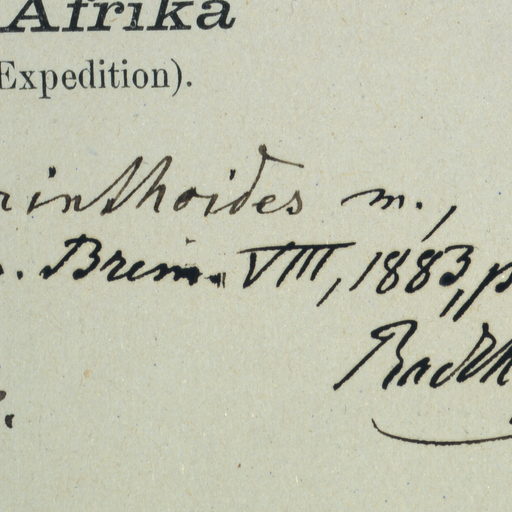 Afrika
Expedition).
rinthoides m.,
. Brem. VIII, 1883, p
Radlk